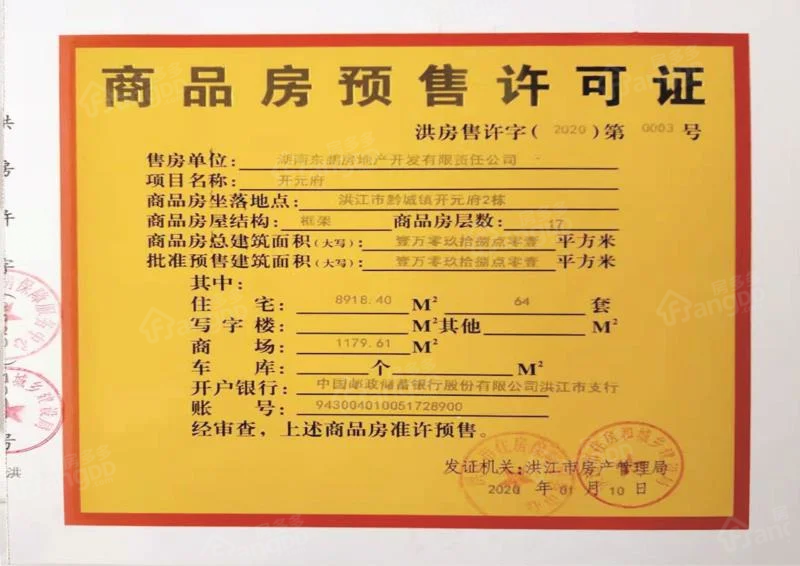 商品房预售许可证
洪房售许字（2020）第 0003 号
售房单位：湖南东鹏房地产开发有限责任公司
项目名称：开元府
商品房坐落地点：洪江市黔城镇开元府2栋
商品房屋结构：框架 商品房层数：17
商品房总建筑面积（大写）：壹万零玖拾捌点零壹 平方米
批准预售建筑面积（大写）：壹万零玖拾捌点零壹 平方米
其中：
住宅：8918.40 M² 64 套
写字楼： M² 其他 M²
商场：1179.61 M²
车库： 个 M²
开户银行：中国邮政储蓄银行股份有限公司洪江市支行
账号：943004010051728900
经审查，上述商品房准许预售。
发证机关：洪江市房产管理局
2020 年 01 月 10 日
洪房许字
号
洪
房多多
FangDD